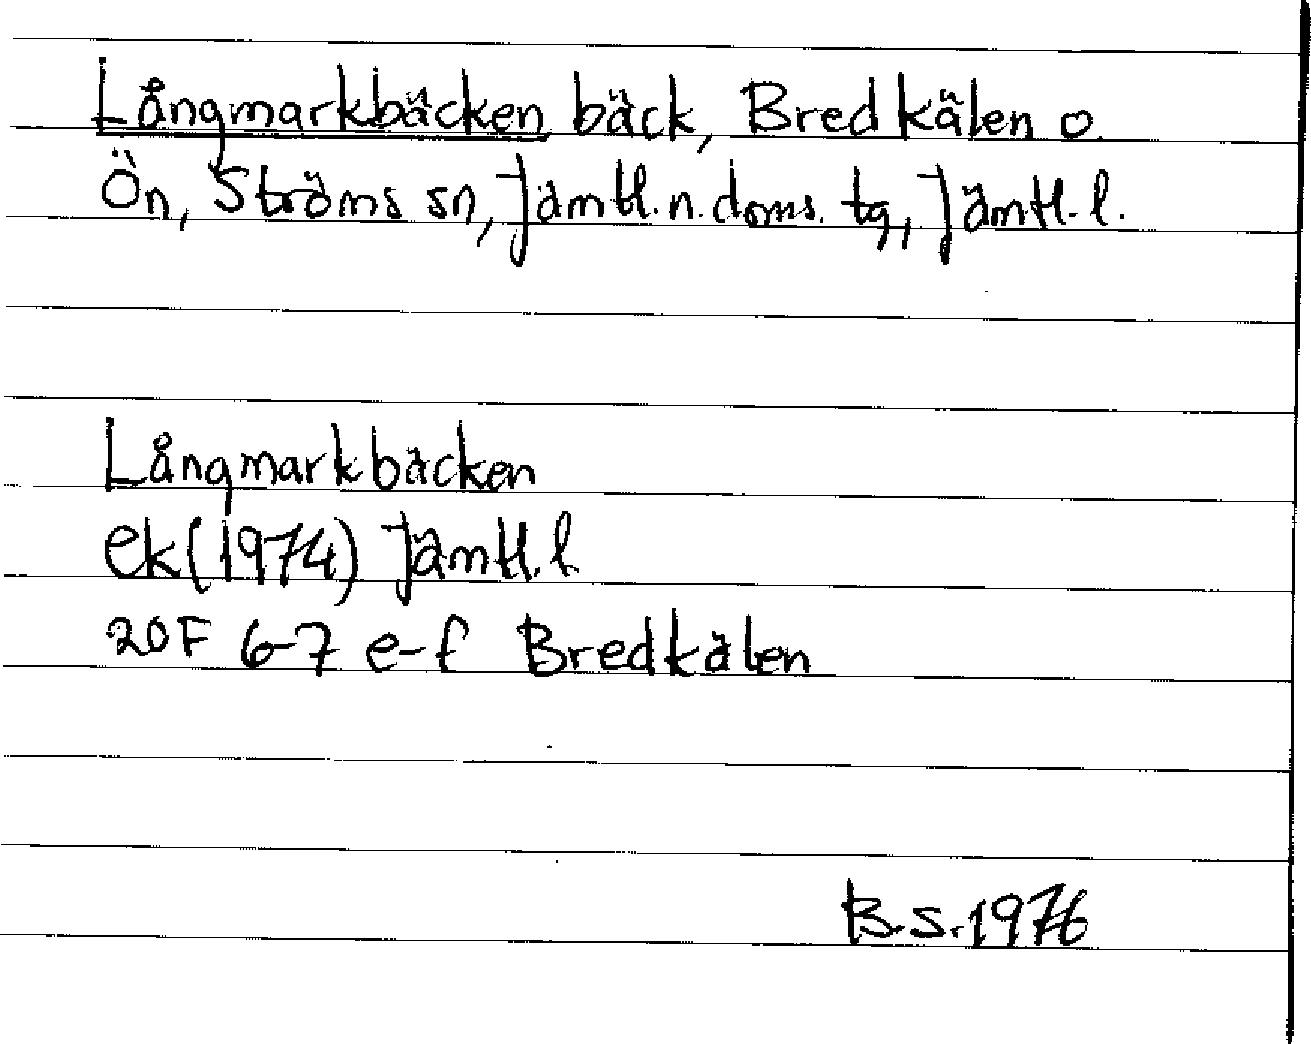 Långmarkbäcken bäck, Bredkälen o.
Ön, Ströms sn, Jämtl. n. doms. tg, Jämtl. l.
Långmarkbäcken
ek (1974) Jämtl. l.
20F 6-7 e-f Bredkälen
B.S. 1976